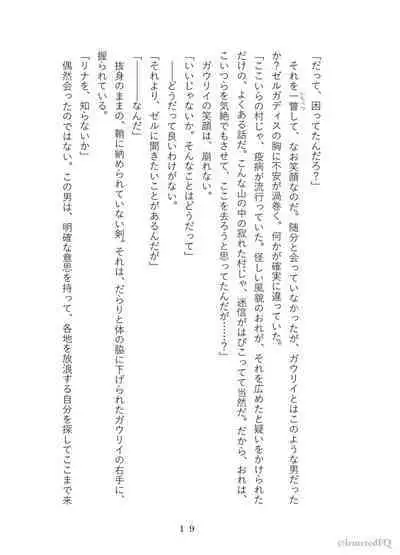 「だって、困ってたんだろ？」
　それを一瞥して、なお笑顔なのだ。随分と会っていなかったが、ガウリイとはこのような男だった
か？ゼルガディスの胸に不安が渦巻く。何かが確実に違っていた。
「ここいらの村じゃ、疫病が流行っていた。怪しい風貌のおれが、それを広めたと疑いをかけられた
だけの、よくある話だ。こんな山の中の寂れた村じゃ、迷信がはびこってて当然だ。だから、おれは、
こいつらを気絶でもさせて、ここを去ろうと思ってたんだが……？」
　ガウリイの笑顔は、崩れない。
「いいじゃないか。そんなことはどうだって」
　――どうだって良いわけがない。
「それより、ゼルに聞きたいことがあるんだが」
「――――なんだ」
　抜身のままの、鞘に納められていない剣。それは、だらりと体の脇に下げられたガウリイの右手に、
握られている。
「リナを、知らないか」
　偶然会ったのではない。この男は、明確な意思を持って、各地を放浪する自分を探してここまで来
19